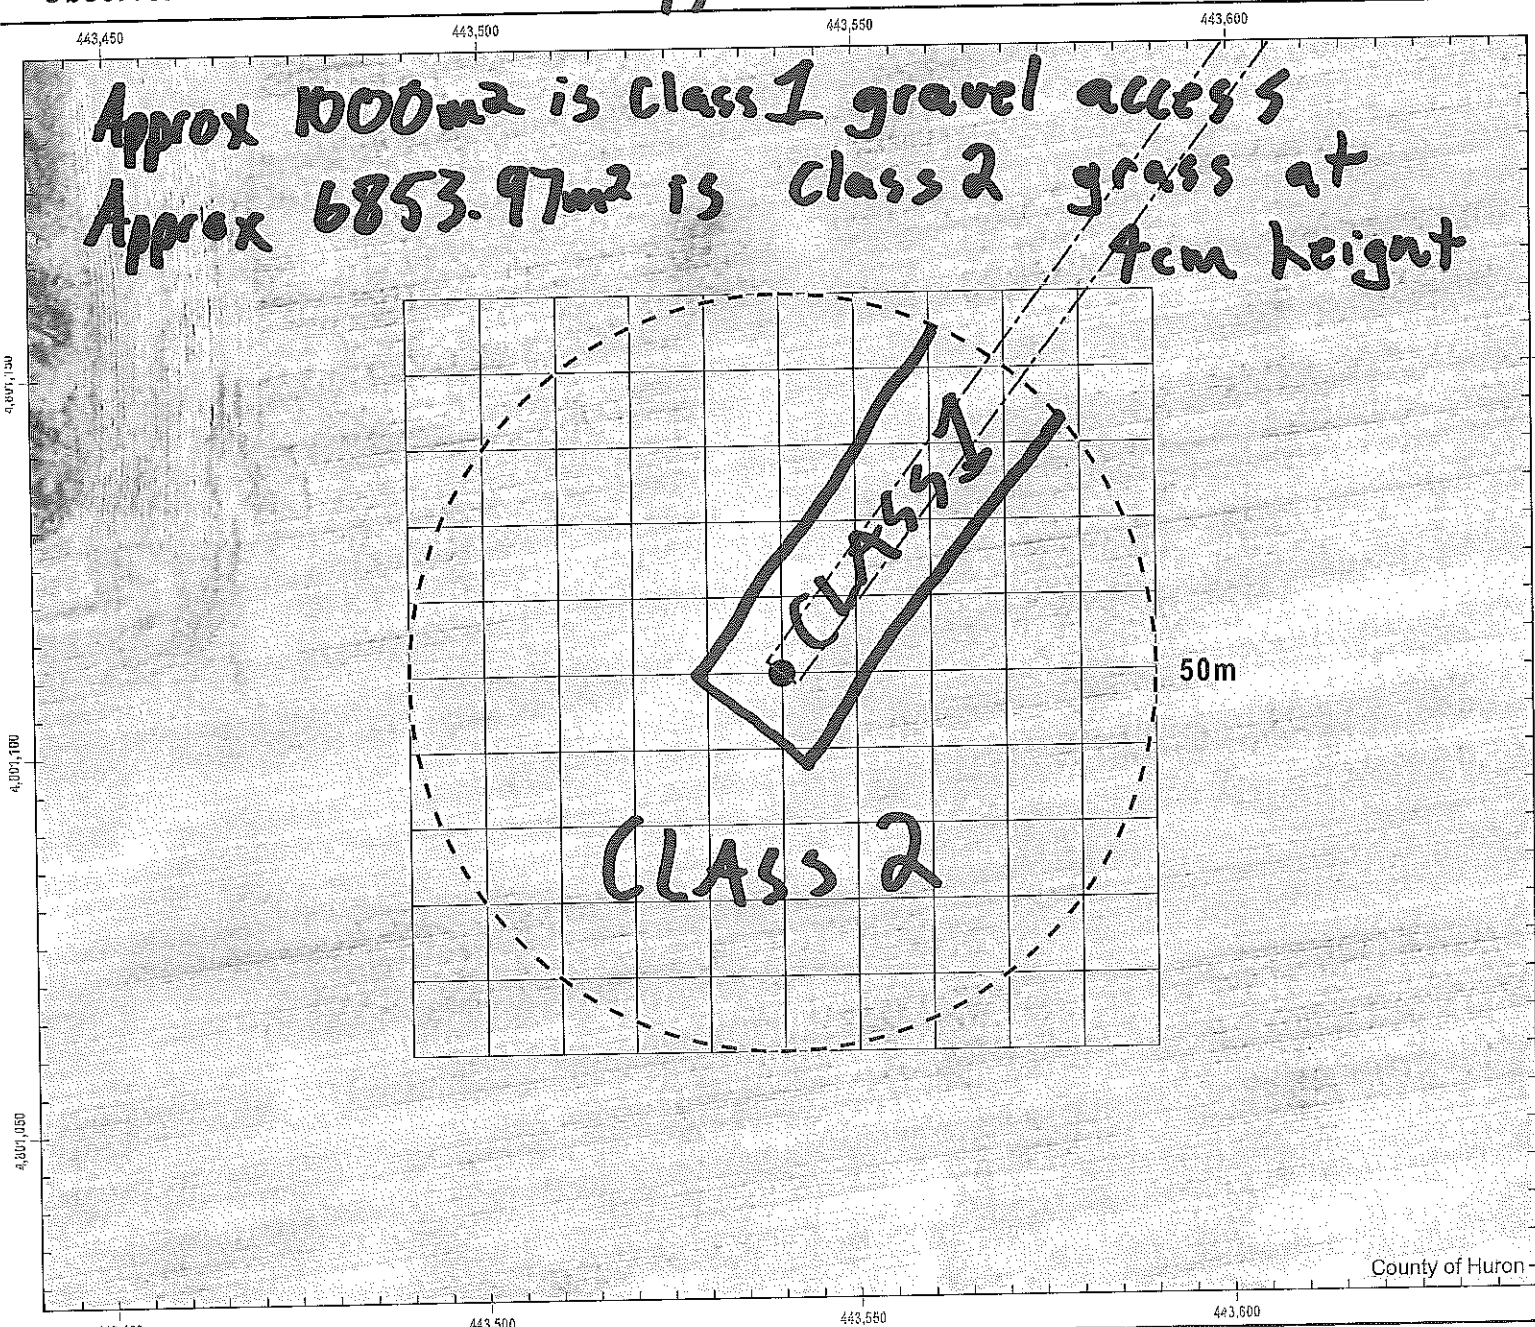 443,450 443,500 443,550 443,600
Approx 1000m² is Class 1 gravel access
Approx 6853.97m² is Class 2 grass at
4cm height
4,801,150
CLASS 1
50m
4,801,100
CLASS 2
4,801,050
County of Huron
443,500 443,550 443,600